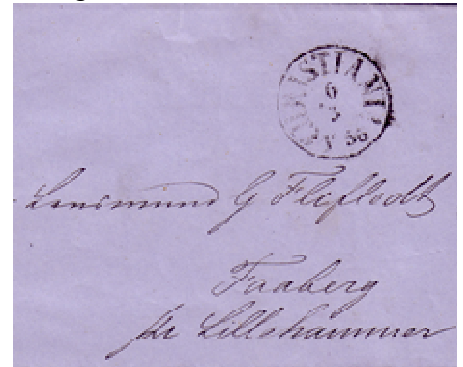 CHRISTIANIA
6
3
56
Lensmand G Fliflodt
Faaberg
pr Lillehammer